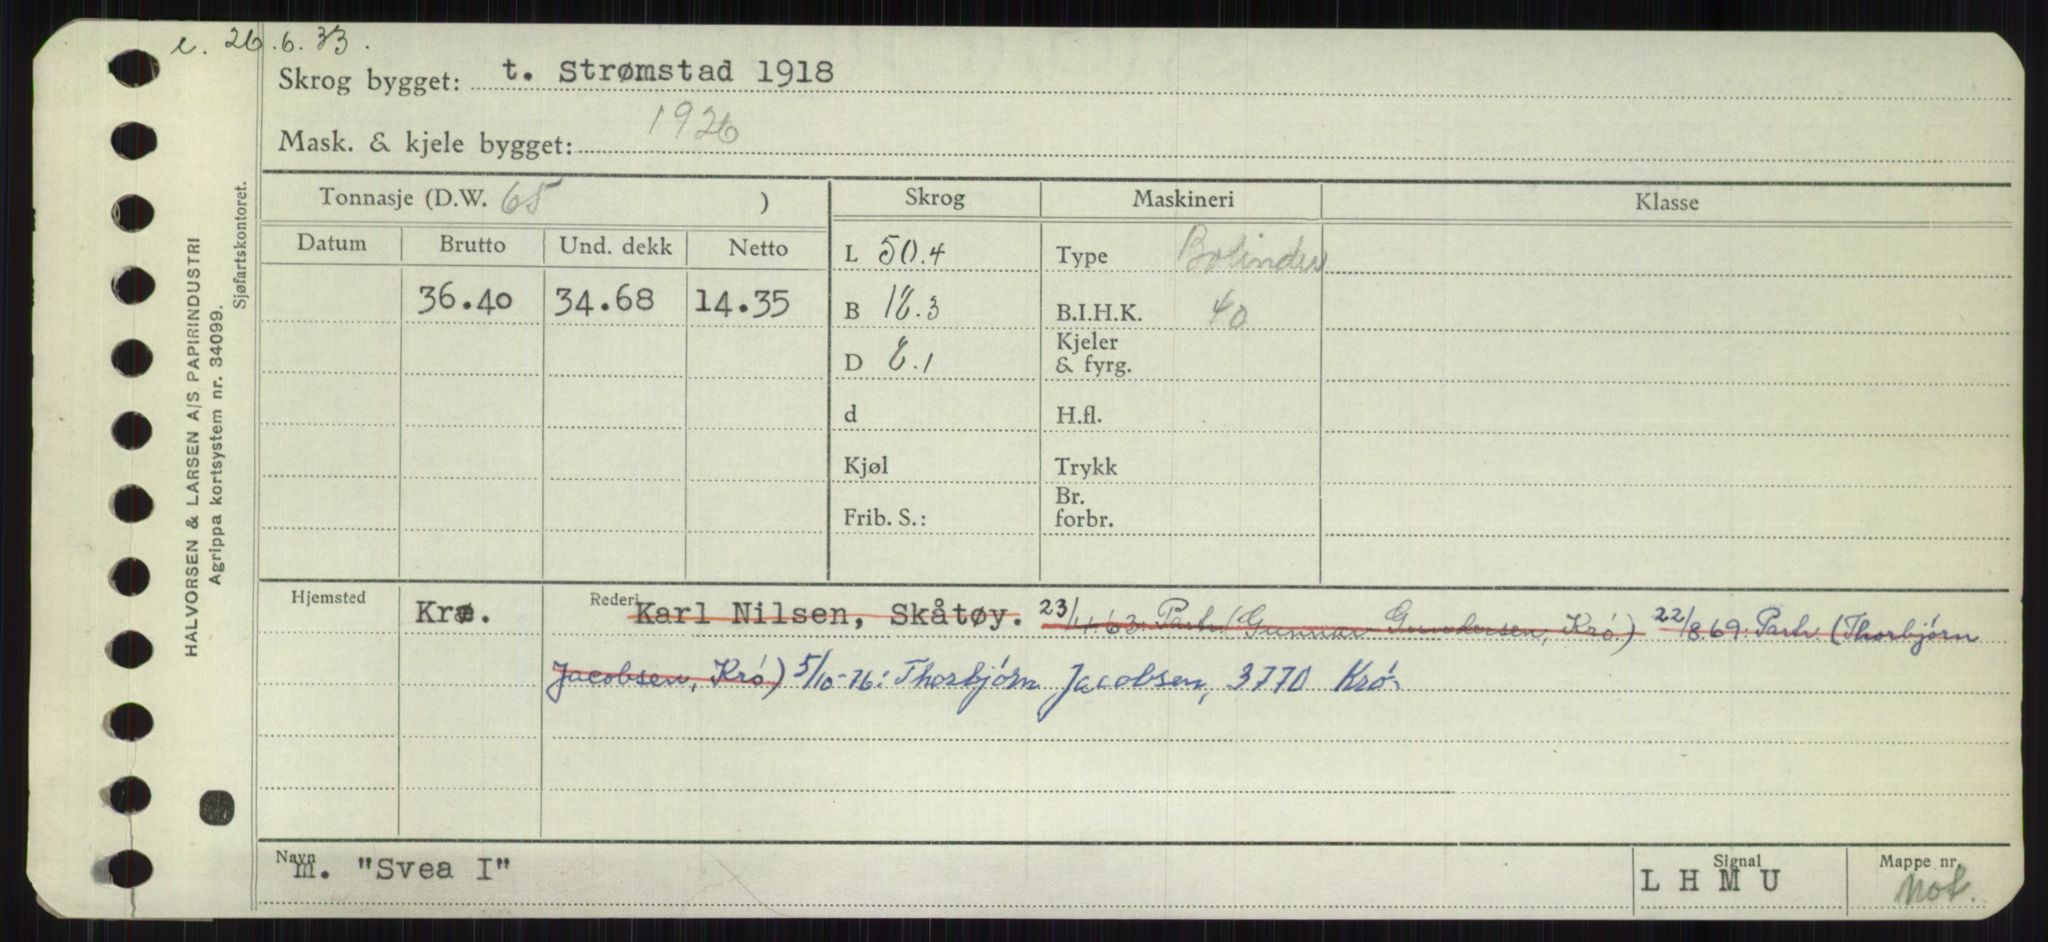 e. 26.6.33.
Skrog bygget: t. Strømstad 1918
Mask. & kjele bygget: 1926
HALVORSEN & LARSEN A/S PAPIRINDUSTRI
Agrippa kortsystem nr. 34099.
Sjøfartskontoret.
Tonnasje (D.W. 65 ) Skrog Maskineri Klasse
Datum Brutto Und. dekk Netto
L 50.4 Type Bolinder
36.40 34.68 14.35 B 18.3 B.I.H.K. 40
D 8.1 Kjeler & fyrg.
d H.fl.
Kjøl Trykk
Frib. S.: Br. forbr.
Hjemsted Krø. Rederi Karl Nilsen, Skåtøy. 23/11.63: Partr. (Gunnar Gundersen, Krø.) 22/8.69: Partr. (Thorbjørn
Jacobsen, Krø) 5/10-76: Thorbjørn Jacobsen, 3770 Krø.
Navn m. "Svea I" Signal L H M U Mappe nr. Mot.